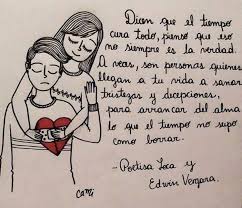 Dicen que el tiempo
cura todo, pienso que eso
no siempre es la verdad.
A veces, son personas quienes
llegan a tu vida a sanar
tristezas y decepciones,
para arrancar del alma
lo que el tiempo no supo
como borrar.
- Poetisa Loca y
Edwin Vergara.